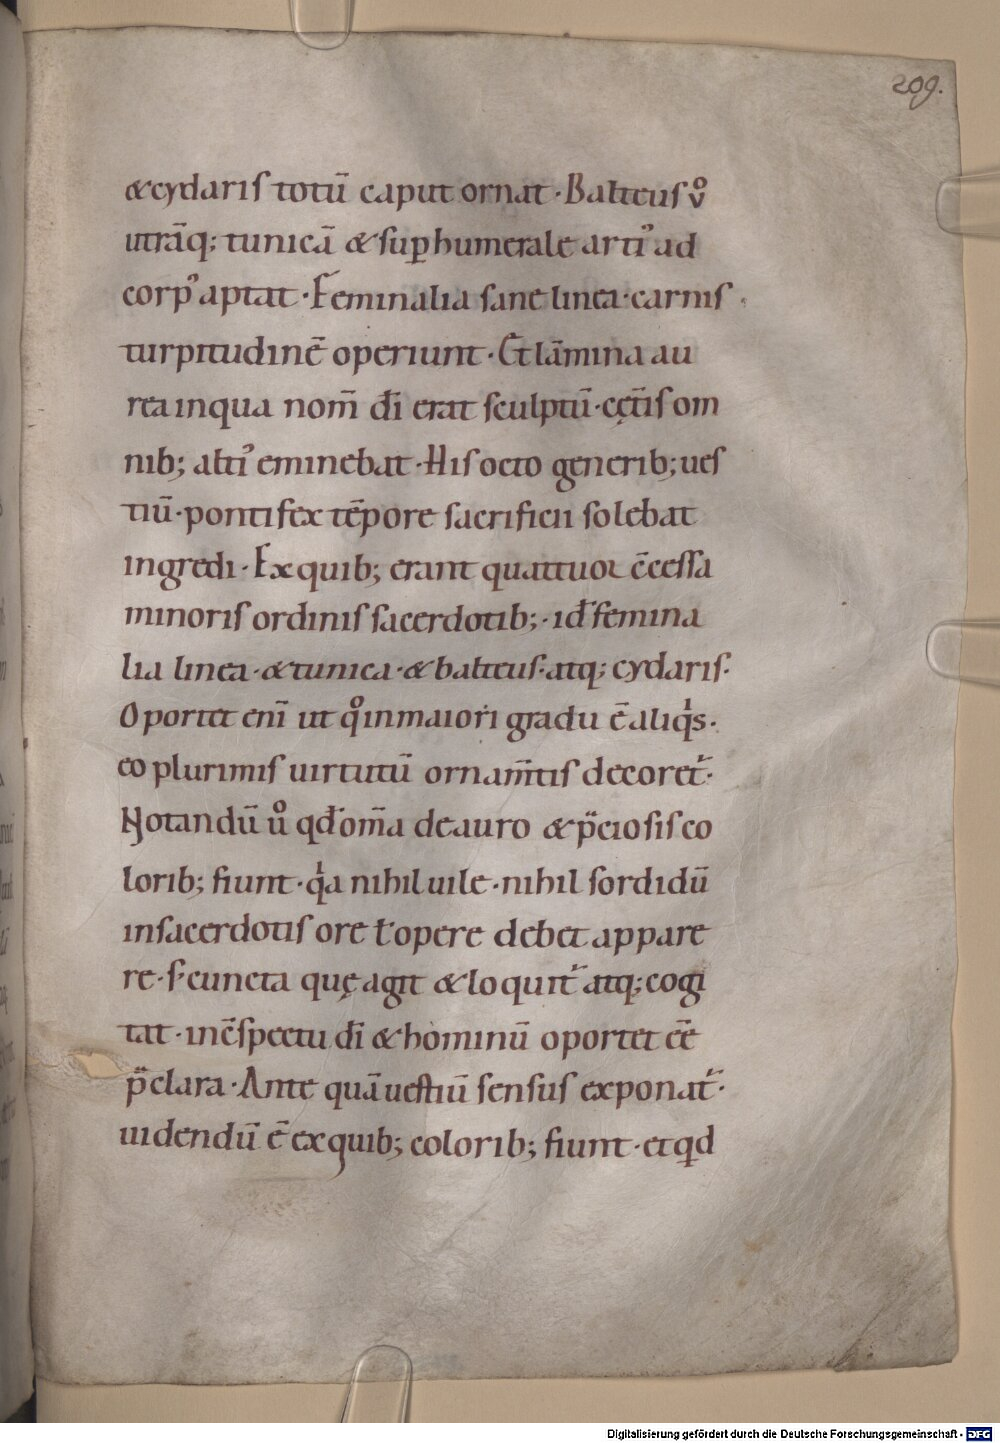 209.
&cydaris totū caput ornat · Balteus ůo
utrāq; tunicā & sup̱humerale arti᾽ ad
corp᾽ aptat · Feminalia sane linea · carnis
turpitudinē operiunt · Et lāmina au
rea in qua nom̄ dī erat sculptū · cęt̄is om
nib; alti᾽ eminebat · His octo generib; ues
tiū · pontifex tēpore sacrificii solebat
ingredi · Ex quib; erant quattuor c̄cessa
minoris ordinis sacerdotib; · id ÷ femina
lia linea · & tunica · & balteus · atq; cydaris ·
Oportet enī ut qͦ in maiori gradu ē aliqͥs ·
eo plurimis uirtutū ornam̄tis decoret᷑ ·
Notandū uͦ qđ om̄a de auro & p̄ciosis co
lorib; fiunt · qͥa nihil uile · nihil sordidū
in sacerdotis ore ł opere debet appare
re · s᷑ cuncta quę agit & loquit᷑ atq; cogi
tat · in c̄spectu dī & hominū oportet ēe
p̄clara · Ante quā uestiū sensus exponat᷑ ·
uidendū ē ex quib; colorib; fiunt · et qđ
Digitalisierung gefördert durch die Deutsche Forschungsgemeinschaft - DFG